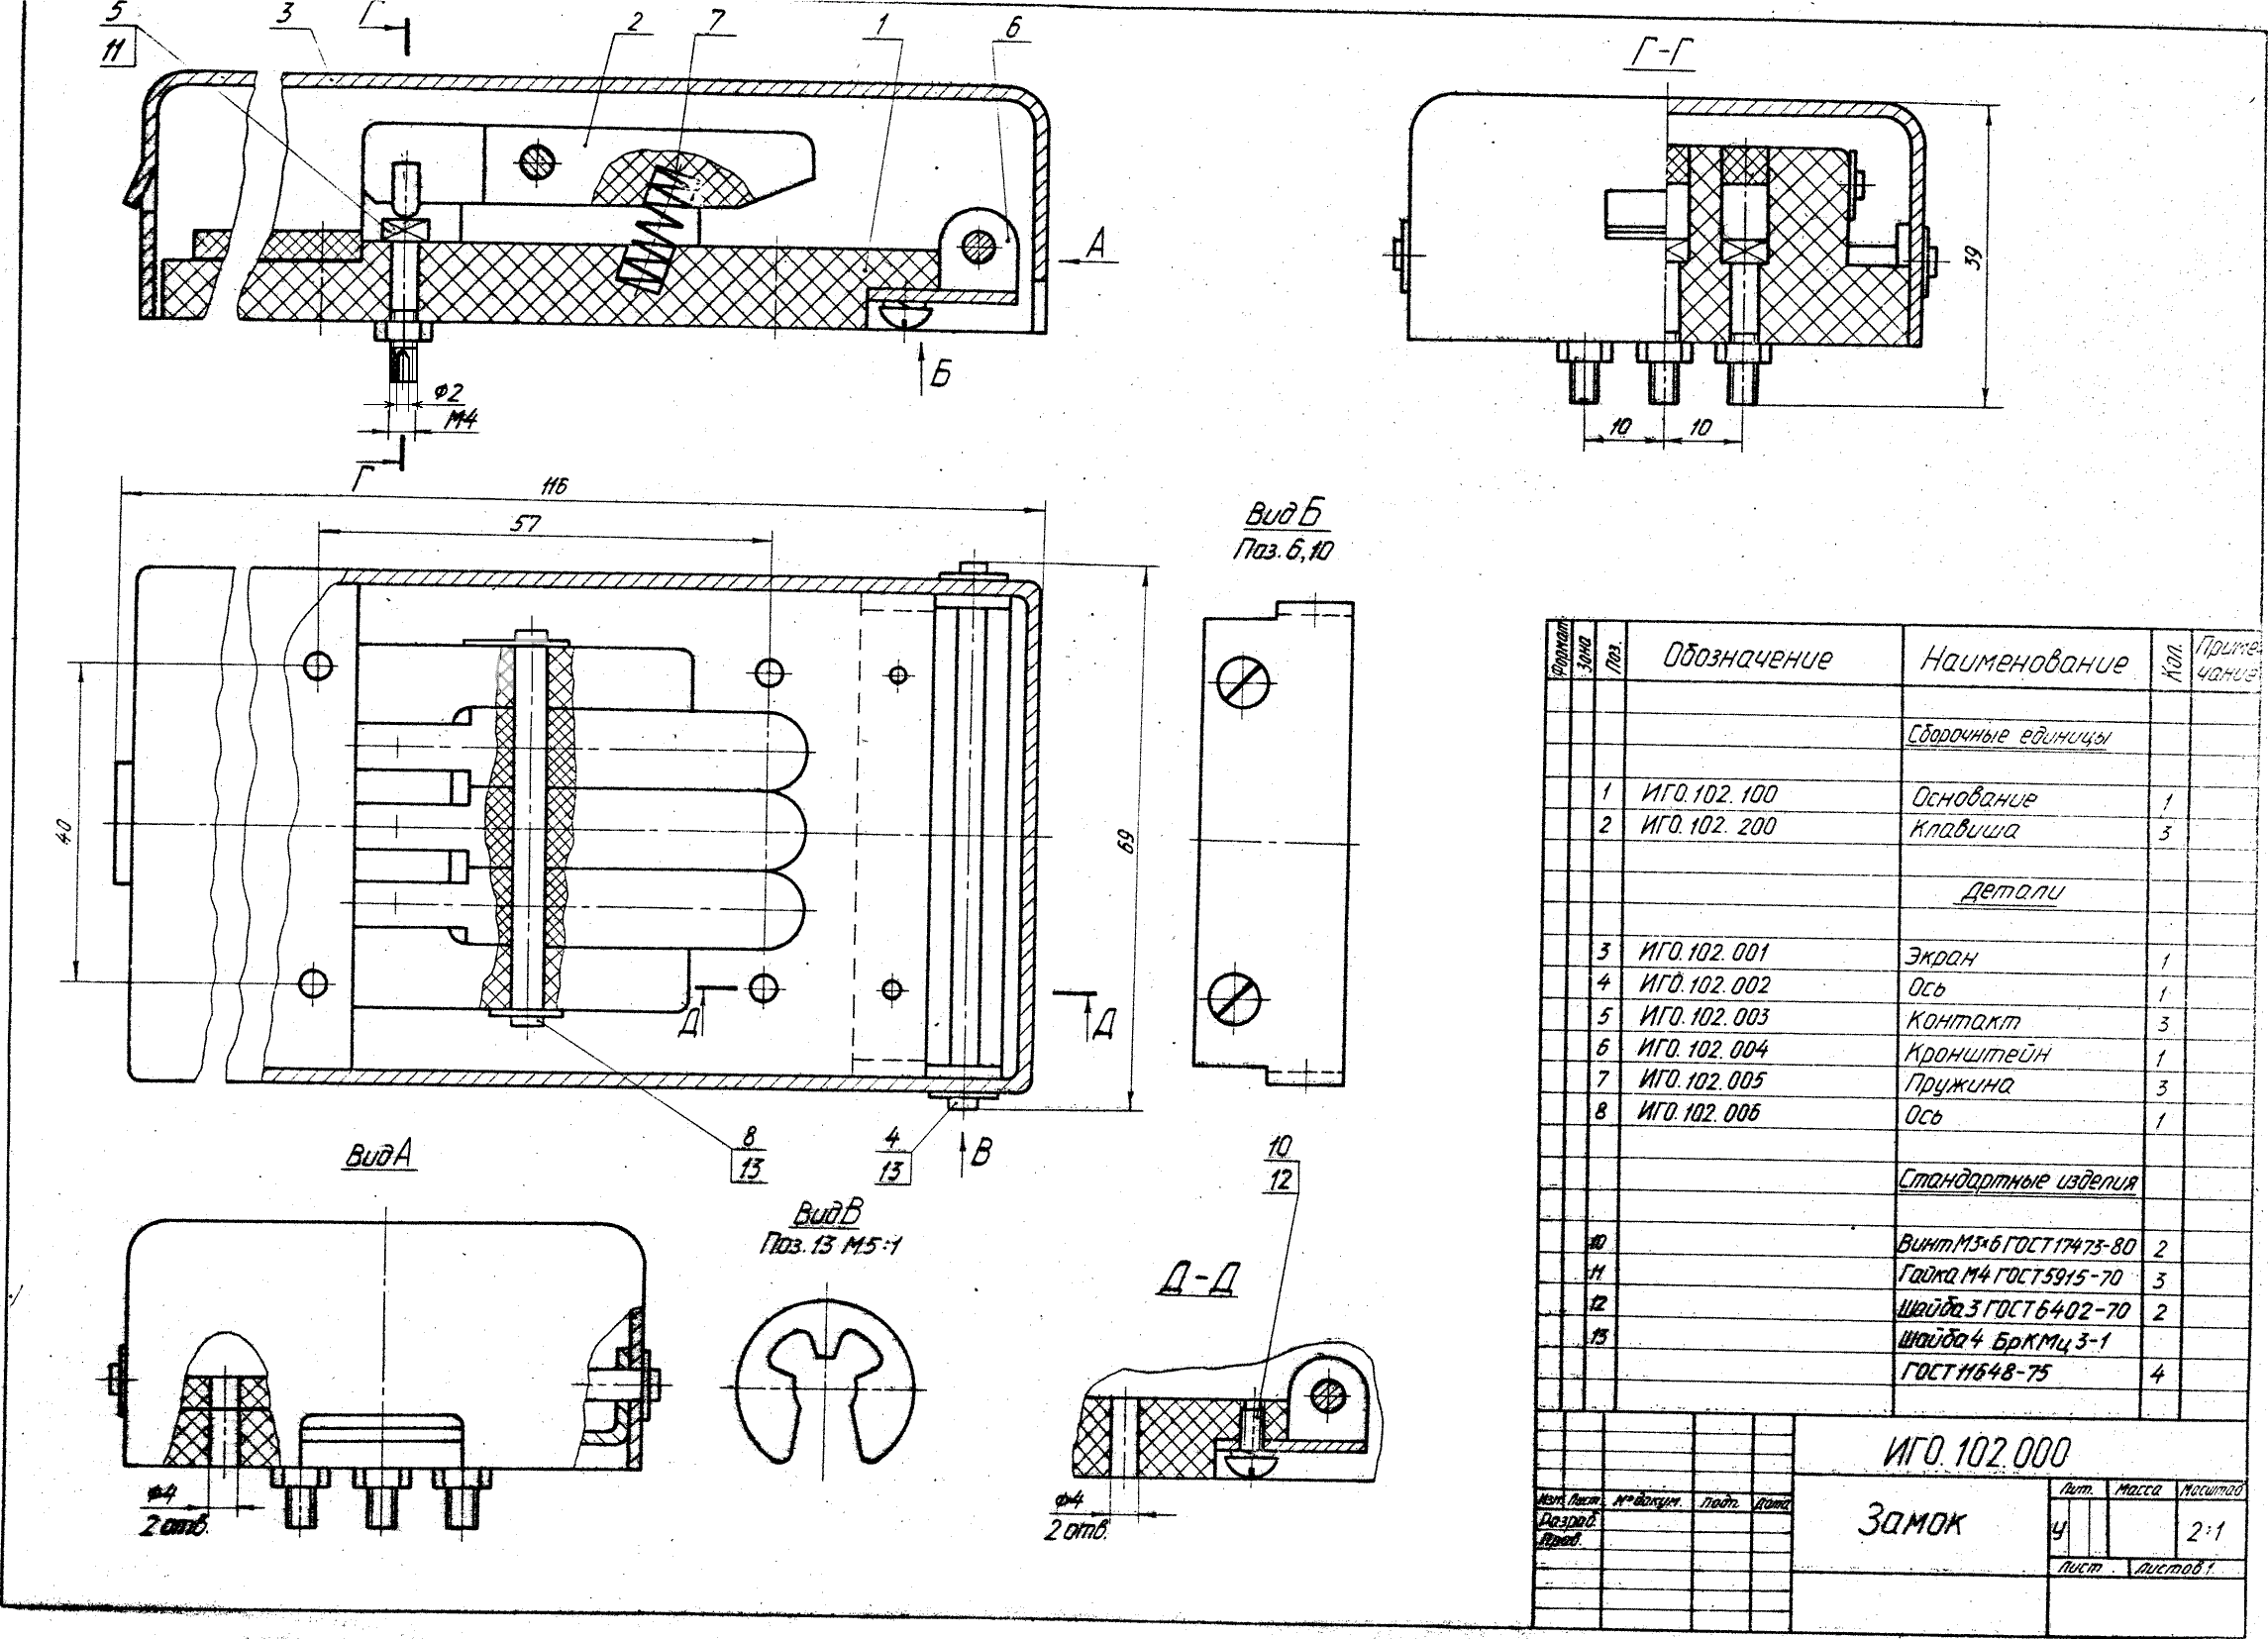 5
11
3
Г
2
7
1
6
А
Б
Ф2
М4
Г
Г-Г
39
10
10
116
57
40
69
Д
Д
8
13
4
13
В
Вид Б
Поз. 6,10
Вид А
Ф4
2 отв.
Вид В
Поз. 13 М5:1
10
12
Д-Д
Ф4
2 отв.
Формат
Зона
Поз.
Обозначение
Наименование
Кол.
Приме-
чание
Сборочные единицы
1 ИГО.102.100 Основание 1
2 ИГО.102.200 Клавиша 3
Детали
3 ИГО.102.001 Экран 1
4 ИГО.102.002 Ось 1
5 ИГО.102.003 Контакт 3
6 ИГО.102.004 Кронштейн 1
7 ИГО.102.005 Пружина 3
8 ИГО.102.006 Ось 1
Стандартные изделия
10 Винт М3×6 ГОСТ 17473-80 2
11 Гайка М4 ГОСТ 5915-70 3
12 Шайба 3 ГОСТ 6402-70 2
13 Шайба 4 БрКМц 3-1
ГОСТ 11648-75 4
ИГО.102.000
Замок
Изм. Лист № докум. Подп. Дата
Разраб.
Пров.
Лит. Масса Масштаб
У 2:1
Лист Листов 1